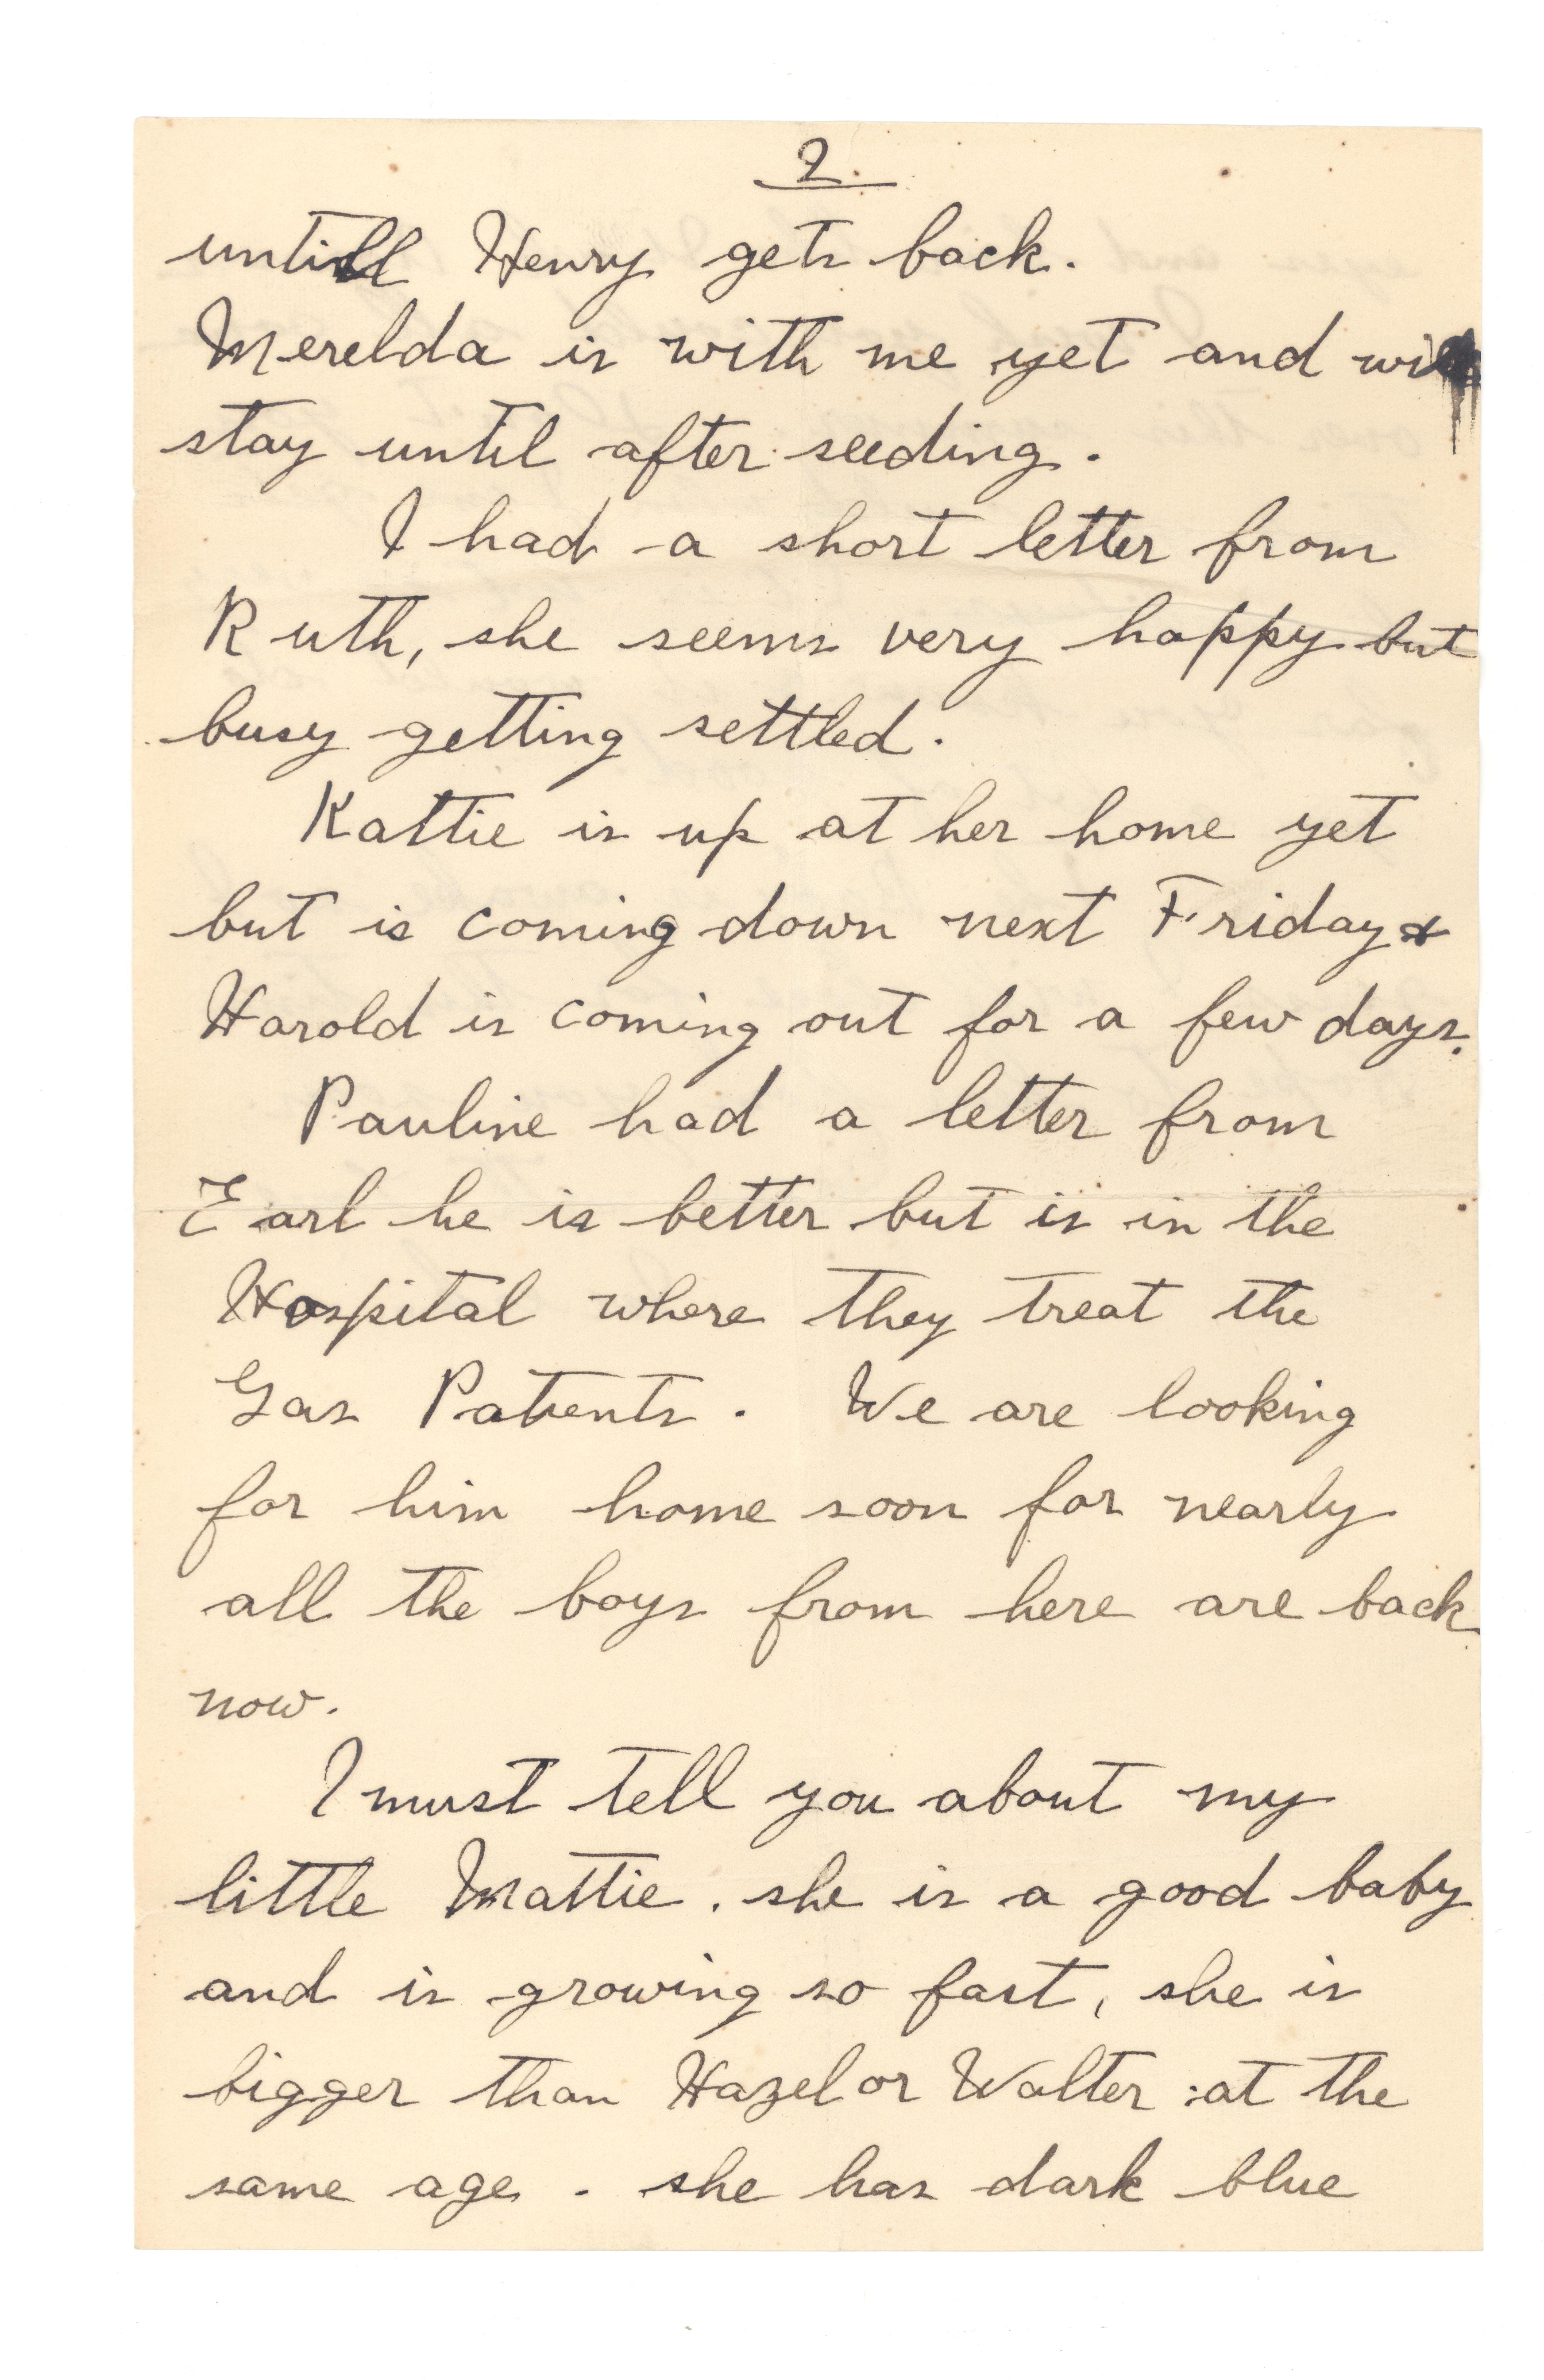 2.
untill Henry gets back.
Merelda is with me yet and will
stay until after seeding.
I had a short letter from
Ruth, she seems very happy but
busy getting settled.
Kattie is up at her home yet
but is coming down next Friday &
Harold is coming out for a few days.
Pauline had a letter from
Earl he is better but is in the
Hospital where they treat the
Gas Patients. We are looking
for him home soon for nearly
all the boys from here are back
now.
I must tell you about my
little Mattie. she is a good baby
and is growing so fast, she is
bigger than Hazel or Walter at the
same age. she has dark blue